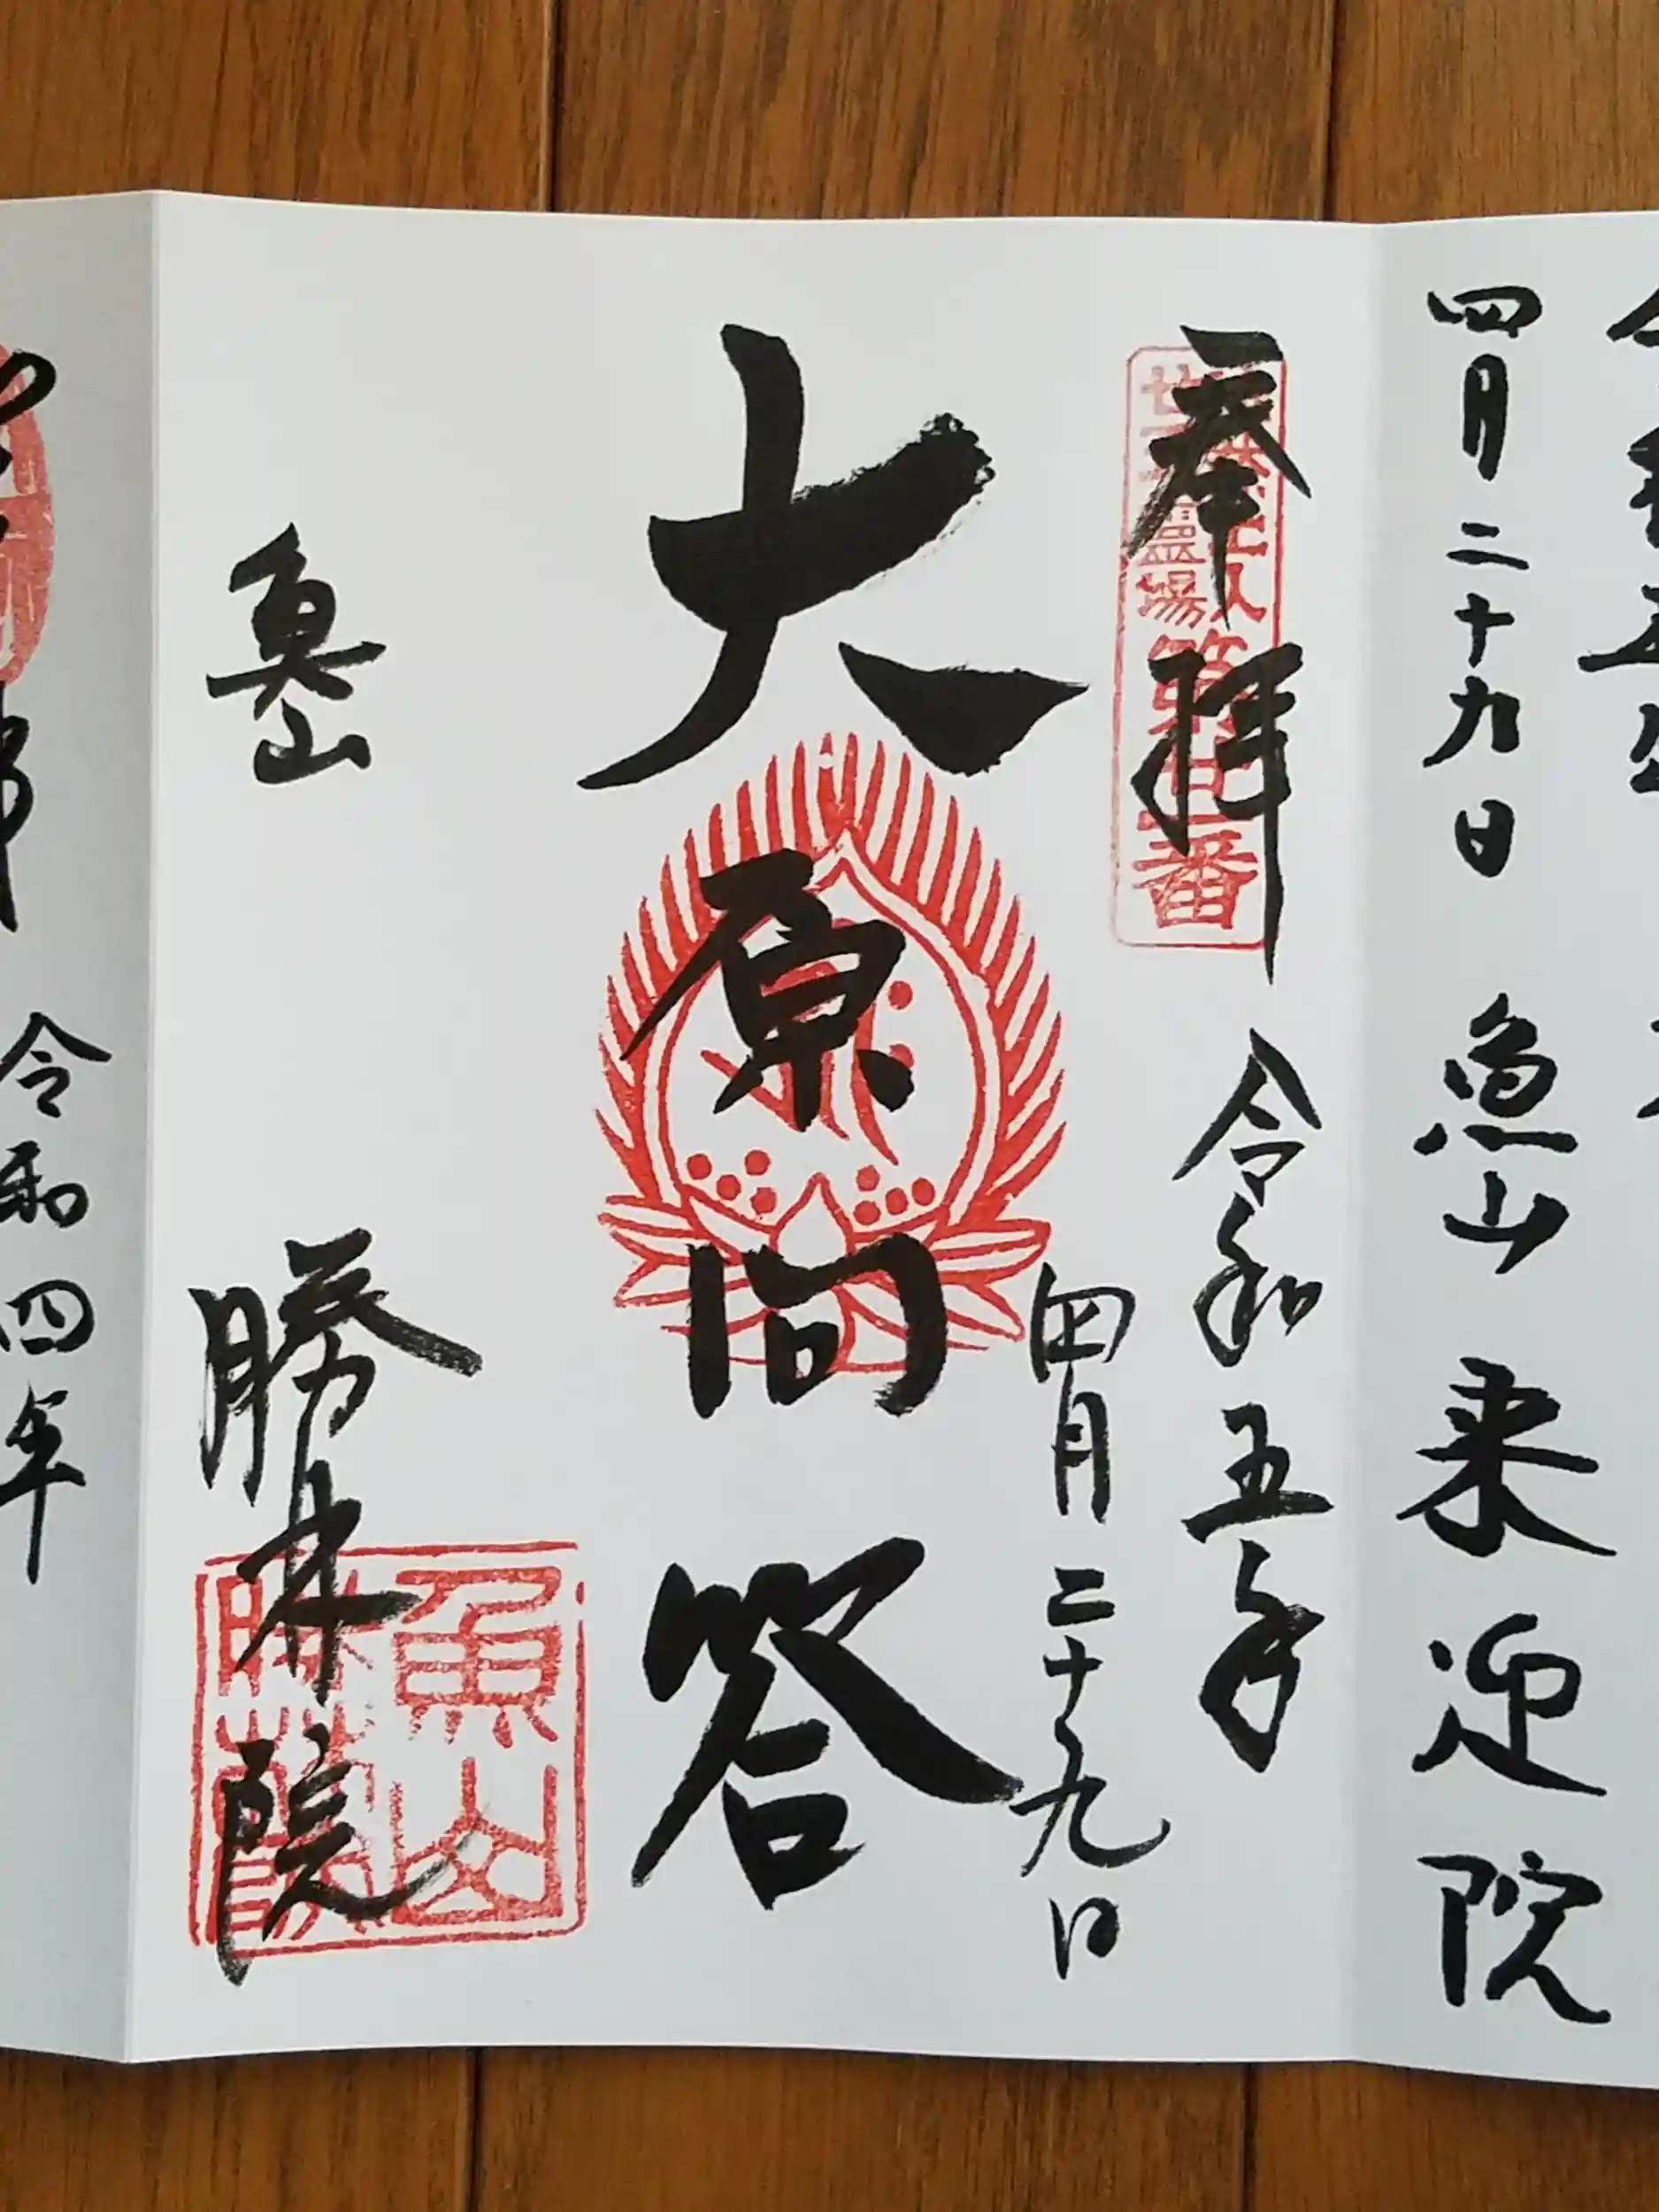 四月二十九日 魚山 来迎院
奉拝 令和五年
四月二十九日
廿五霊場 第廿一番
大原問答
魚山
勝林院
魚山
勝林院
令和四年